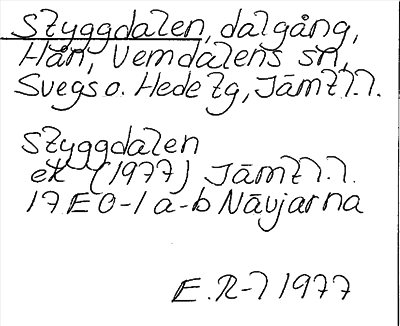 Styggdalen, dalgång,
Hån, Vemdalens sn,
Svegs o. Hede tg, Jämtl.l.
Styggdalen
ek (1977) Jämtl.l.
17 E 0-1 a-b Nävjarna
E. R-l 1977